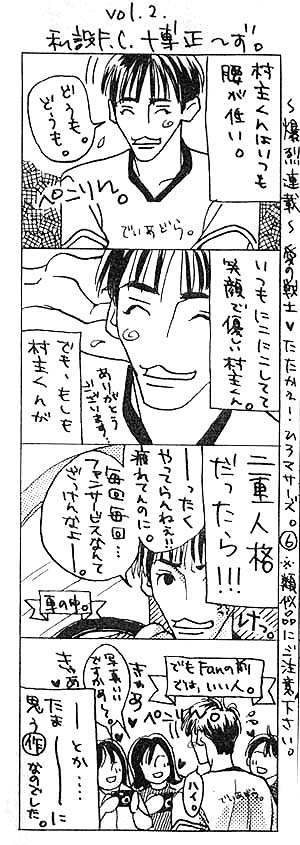 vol.2.
私設F.C.+専正〜ず。
〜爆烈連載〜 愛の戦士♥たたかえ!ひろマサーズ。⑥ ※類似品にご注意下さい。
村主くんはいつも
腰が低い。
どうも。
どうも。
ペこりん。
でぃあどら。
いつもにこにこしてて
笑顔で優しい村主くん。
ありがとう
ございます…
でも、もしも
村主くんが
二重人格
だったら!!!
―ったく
やってらんねえ!!
疲れてんのに。
毎回毎回…
ファンサービスなんて
ごめんなよー。
けっ。
車の中。
でもFanの前
では、いい人。
ペこり
きゃあ
写真いい
ですかぁー?
きゃあ
ハイ。
でぃあどら。
―とか……
たま――に
思う作なのでした。